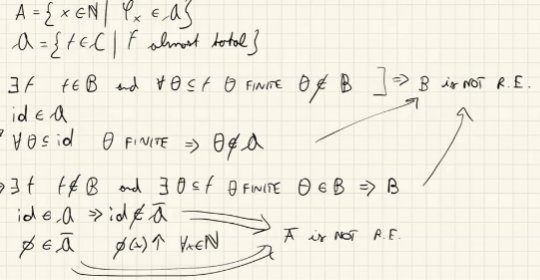 A = { x ∈ ℕ | φₓ ∈ 𝒜 }
𝒜 = { f ∈ C | f almost total }
∃f f ∈ B and ∀θ ⊆ f θ FINITE θ ∉ B ] ⇒ B is NOT R.E.
id ∈ 𝒜
∀θ ⊆ id θ FINITE ⇒ θ ∉ 𝒜
∃f f ∉ B and ∃θ ⊆ f θ FINITE θ ∈ B ⇒ B
id ∈ 𝒜 ⇒ id ∉ 𝒜̄
∅ ∈ 𝒜̄ ∅(x)↑ ∀x∈ℕ
Ā is NOT R.E.